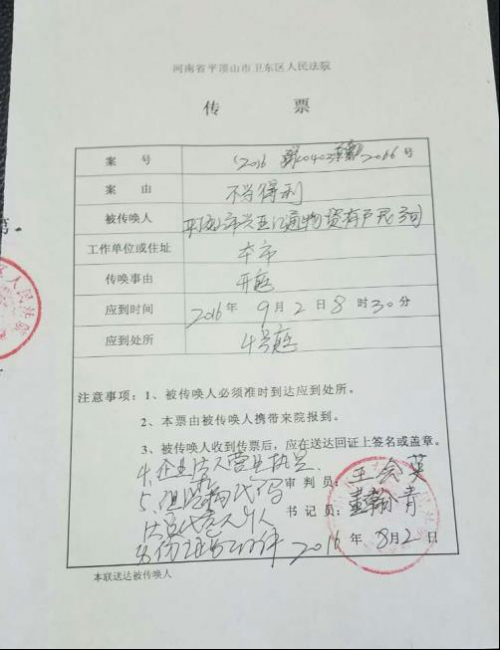 河南省平顶山市卫东区人民法院
传 票
案 号 (2016 0403 2066 号
案 由 不当得利
被传唤人 平顶山市兴亚汇通物资有限公司
工作单位或住址 本市
传唤事由 开庭
应到时间 2016 年 9 月 2 日 8 时 30 分
应到处所 4号庭
注意事项：1、被传唤人必须准时到达应到处所。
2、本票由被传唤人携带来院报到。
3、被传唤人收到传票后，应在送达回证上签名或盖章。
4.企业法人营业执照
5.组织机构代码
法定代表人
身份证
审 判 员： 王会英
书 记 员： 董翰青
2016 年 8 月 2 日
本联送达被传唤人
第
人民法院